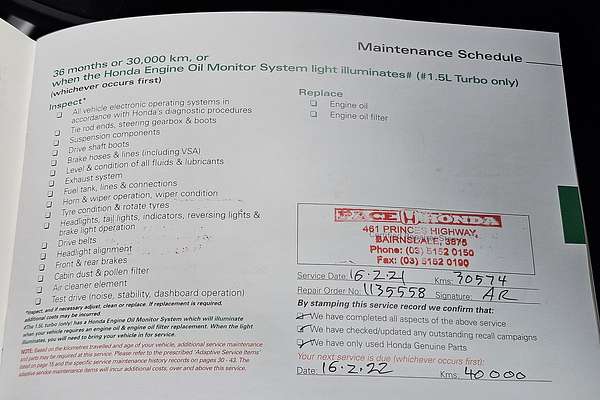 Maintenance Schedule
36 months or 30,000 km, or
when the Honda Engine Oil Monitor System light illuminates# (#1.5L Turbo only)
(whichever occurs first)
Inspect*
❑ All vehicle electronic operating systems in
accordance with Honda's diagnostic procedures
❑ Tie rod ends, steering gearbox & boots
❑ Suspension components
❑ Drive shaft boots
❑ Brake hoses & lines (including VSA)
❑ Level & condition of all fluids & lubricants
❑ Exhaust system
❑ Fuel tank, lines & connections
❑ Horn & wiper operation, wiper condition
❑ Tyre condition & rotate tyres
❑ Headlights, tail lights, indicators, reversing lights &
brake light operation
❑ Drive belts
❑ Headlight alignment
❑ Front & rear brakes
❑ Cabin dust & pollen filter
❑ Air cleaner element
❑ Test drive (noise, stability, dashboard operation)
*Inspect, and if necessary adjust, clean or replace. If replacement is required,
additional costs may be incurred.
#The 1.5L turbo (only) has a Honda Engine Oil Monitor System which will illuminate
when your vehicle requires an engine oil & engine oil filter replacement. When the light
illuminates, you will need to bring your vehicle in for service.
NOTE: Based on the kilometres travelled and age of your vehicle, additional service maintenance
and parts may be required at this service. Please refer to the prescribed 'Adaptive Service Items'
listed on page 15 and the specific service maintenance history records on pages 30 - 43. The
adaptive service maintenance items will incur additional costs, over and above this service.
Replace
❑ Engine oil
❑ Engine oil filter
PACE HONDA
461 PRINCES HIGHWAY,
BAIRNSDALE, 3875
Phone: (03) 5152 0150
Fax: (03) 5152 0190
Service Date: 16.2.21 Kms: 30574
Repair Order No: 1135558 Signature: AR
By stamping this service record we confirm that:
We have completed all aspects of the above service
We have checked/updated any outstanding recall campaigns
We have only used Honda Genuine Parts
Your next service is due (whichever occurs first):
Date: 16.2.22 Kms: 40000